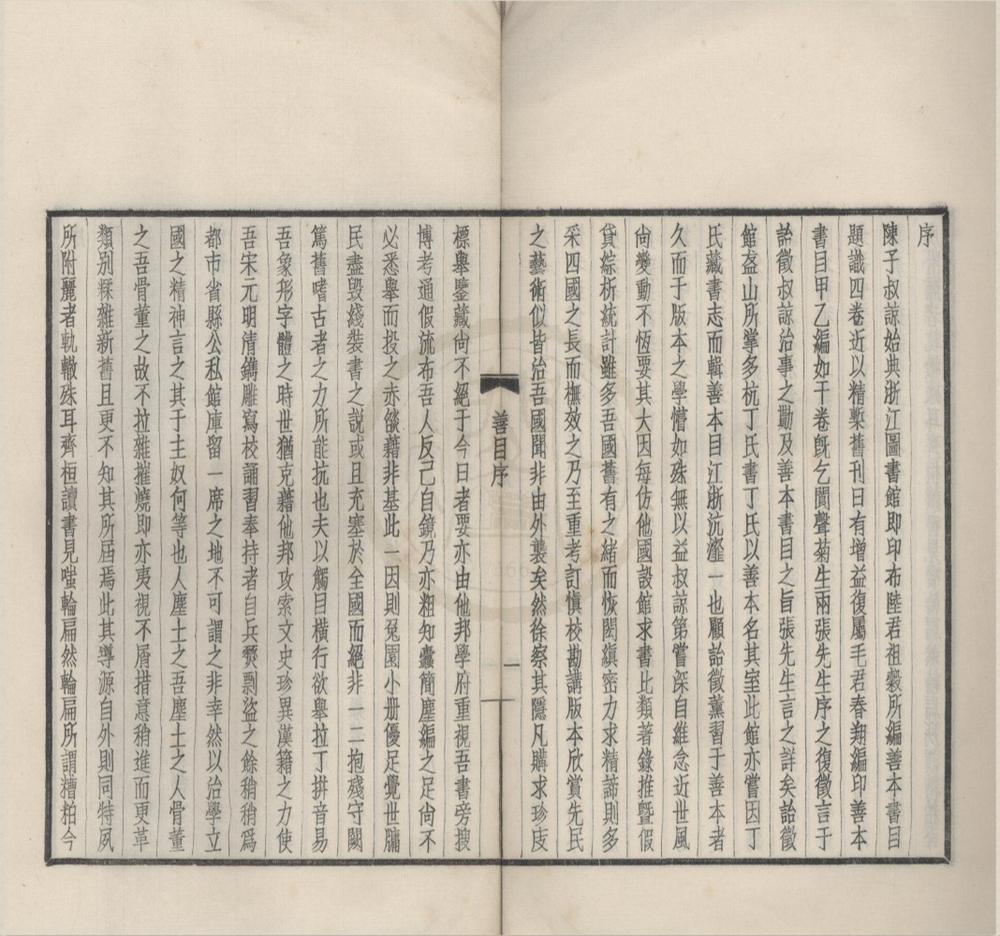 序
陳子叔諒始典浙江圖書館即印布陸君祖穀所編善本書目
題識四卷近以精槧舊刊日有增益復屬毛君春翔編印善本
書目甲乙編如干卷旣乞閬聲菊生兩張先生序之復徵言于
詒徵叔諒治事之勤及善本書目之旨張先生言之詳矣詒徵
館盋山所掌多杭丁氏書丁氏以善本名其室此館亦嘗因丁
氏藏書志而輯善本目江浙沆瀣一也顧詒徵薰習于善本者
久而于版本之學懵如殊無以益叔諒第嘗深自維念近世風
尙變動不恆要其大因每仿他國設館求書比類著錄推暨假
貸綜析統計雖多吾國舊有之緒而恢閎縝密力求精諦則多
采四國之長而橅效之乃至重考訂愼校勘講版本欣賞先民
之藝術似皆治吾國聞非由外襲矣然徐察其隱凡購求珍庋
善目序
一
標舉鑒藏尙不絕于今日者要亦由他邦學府重視吾書旁搜
博考通假流布吾人反己自鏡乃亦粗知蠹簡塵編之足尙不
必悉舉而投之赤燄藉非基此一因則兔園小册優足覺世牖
民盡毀綫裝書之說或且充塞於全國而絕非一二抱殘守闕
篤舊嗜古者之力所能抗也夫以觸目橫行欲舉拉丁拼音易
吾象形字體之時世猶克藉他邦攻索文史珍異漢籍之力使
吾宋元明清鐫雕寫校誦習奉持者自兵燹剽盜之餘稍稍爲
都市省縣公私館庫留一席之地不可謂之非幸然以治學立
國之精神言之其于主奴何等也人塵土之吾塵土之人骨董
之吾骨董之故不拉雜摧燒即亦夷視不屑措意稍進而更革
類別糅雜新舊且更不知其所屆焉此其導源自外則同特夙
所附麗者軌轍殊耳齊桓讀書見嗤輪扁然輪扁所謂糟粕今